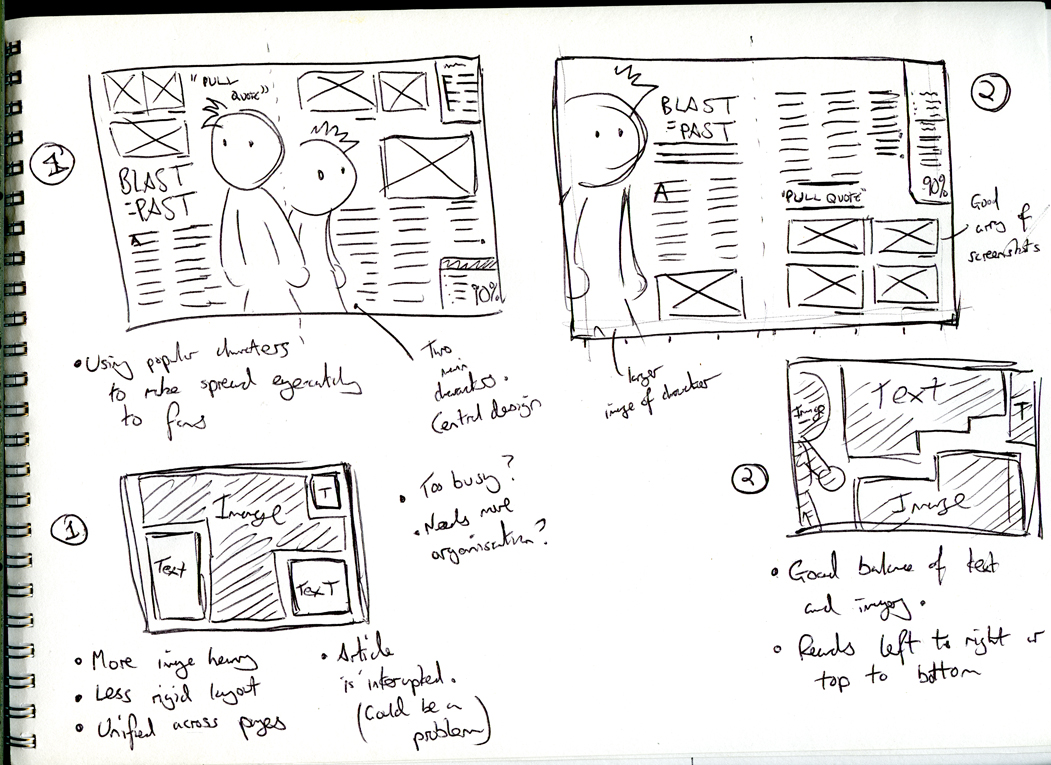 1
"PULL
QUOTE"
BLAST
=PAST
A
90%
• Using popular characters
to make spread eyecatching
to fans
Two
main
characters.
Central design
2
BLAST
=PAST
A
"PULL QUOTE"
90%
Good
array of
screenshots
larger
image of character
1
Image
T
Text
TEXT
• Too busy?
• Needs more
organisation?
• More image heavy
• Less rigid layout
• Unified across pages
• Article
is interrupted.
(Could be a
problem)
2
Image
Text
T
Image
• Good balance of text
and imagery.
• Reads left to right or
top to bottom